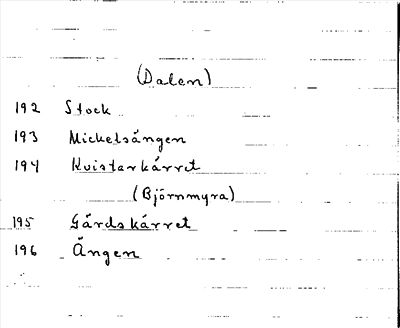 (Dalen)
192 Stock
193 Mickelsängen
194 Kvistarkärret
(Björnmyra)
195 Gärdskärret
196 Ängen